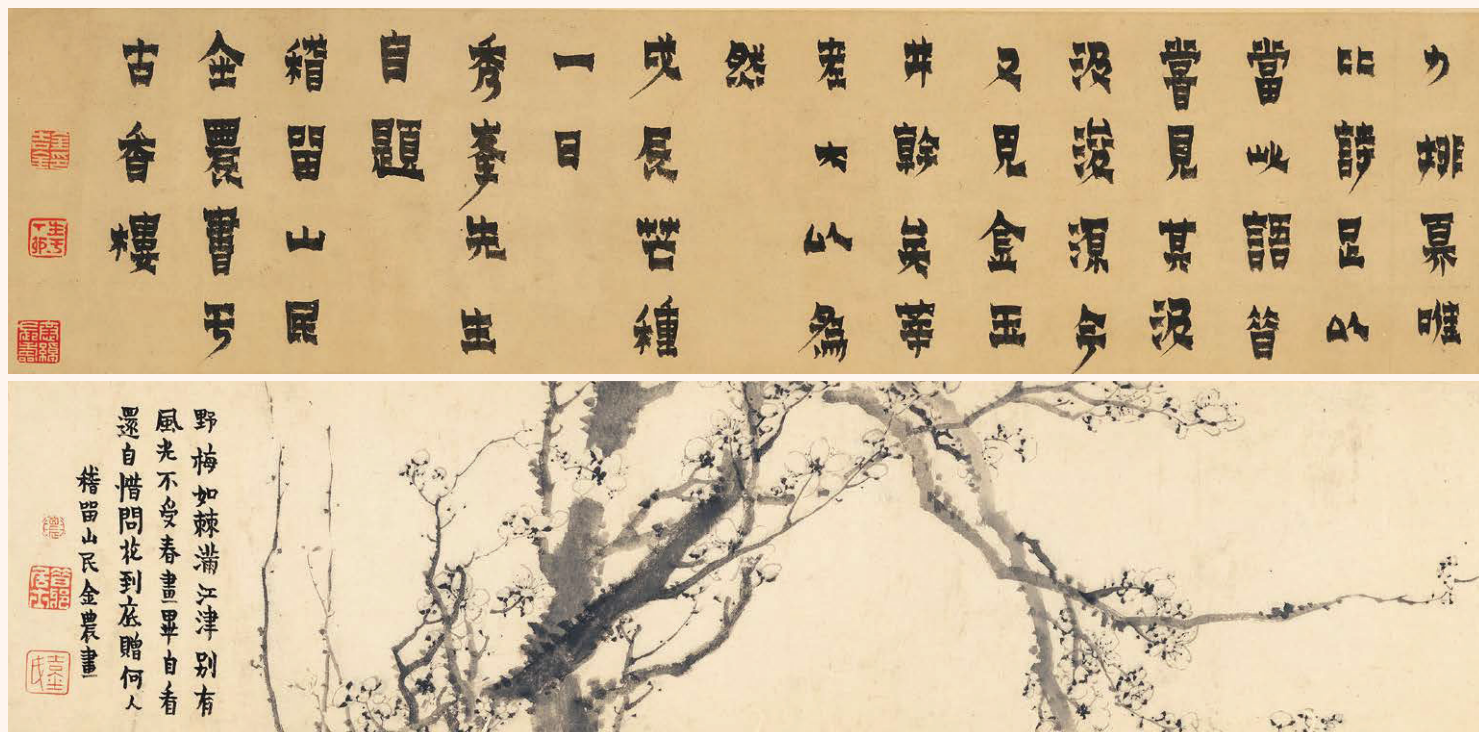 力排唯
比詩足以
當此語皆
嘗見其汲
汲浚源今
又見金玉
井幹英華
大以為
然
戊辰芒種
一日
秀峯先生
自題
稽畱山民
金農書亏
古香樓
野梅如棘滿江津别有
風光不受春畫畢自看
還自惜問花到底贈何人
稽畱山民金農畫